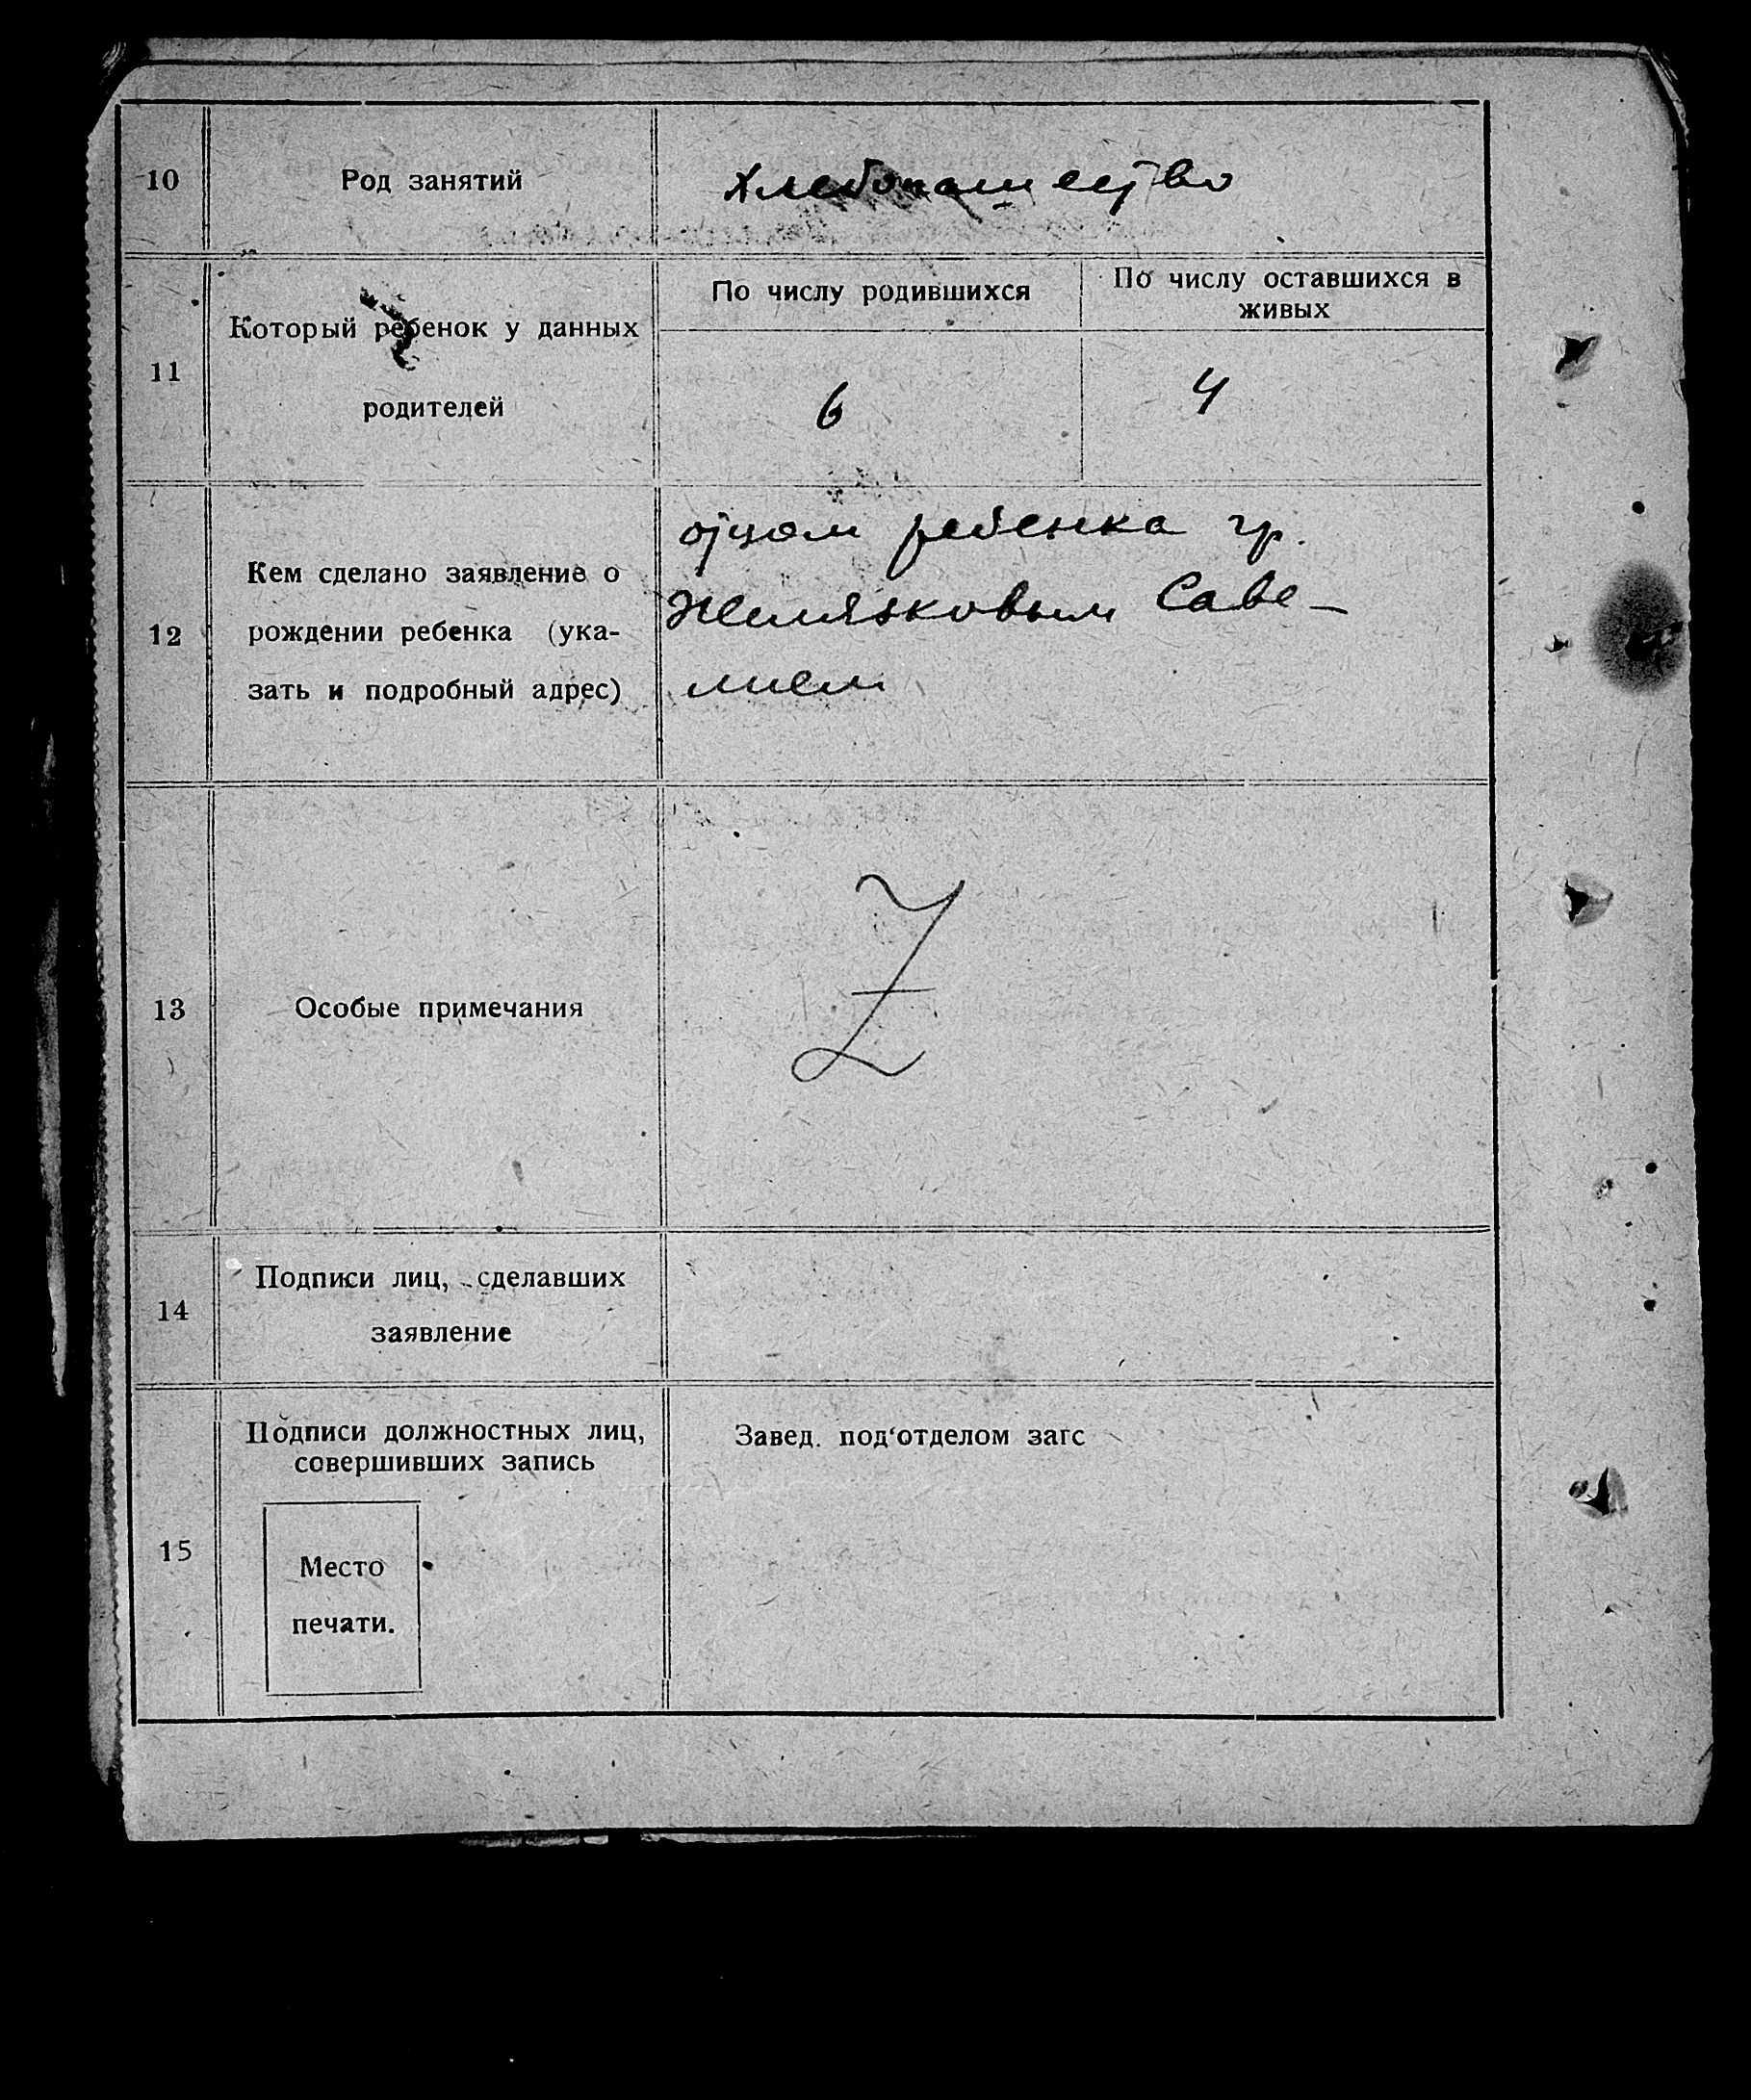 10
Род занятий
Хлебопашество
11
Который ребенок у данных
родителей
По числу родившихся
По числу оставшихся в
живых
6
4
12
Кем сделано заявление о
рождении ребенка (ука-
зать и подробный адрес)
отцом ребенка гр.
Желязковым Саве-
лием
13
Особые примечания
Z
14
Подписи лиц, сделавших
заявление
15
Подписи должностных лиц,
совершивших запись
Место
печати.
Завед. под‘отделом загс